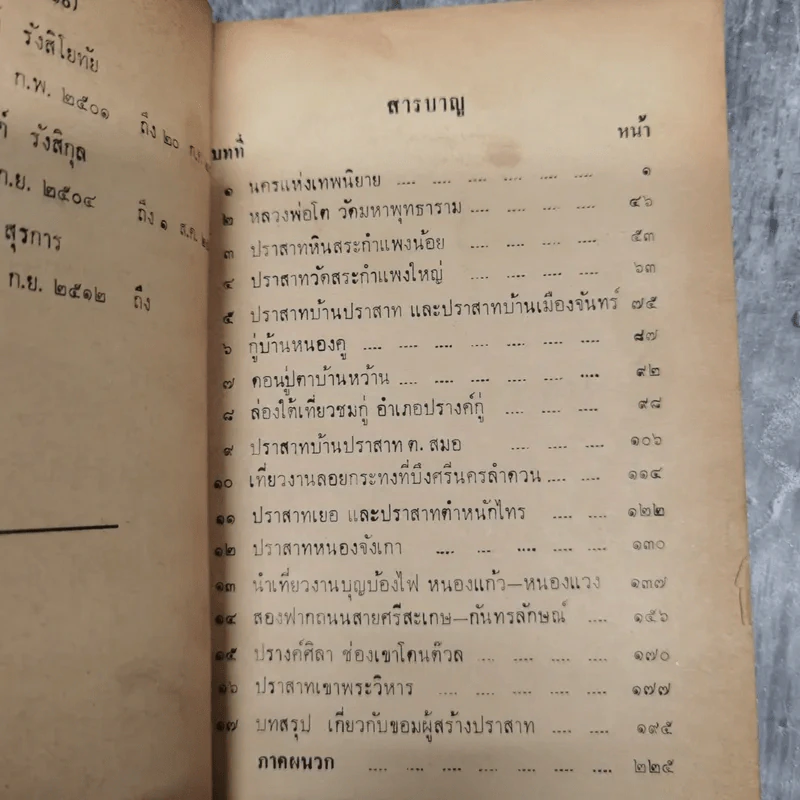 ๖)
รังสิโยทัย
ก.พ. ๒๕๐๑ ถึง ๒๐
รังสิกุล
ก.ย. ๒๕๐๔ ถึง ๑ ธ.ค.
สุรการ
ก.ย. ๒๕๑๒ ถึง
สารบาญ
บทที่ หน้า
๑ นครแห่งเทพนิยาย .... .... .... .... .... .... ๑
๒ หลวงพ่อโต วัดมหาพุทธาราม .... .... .... .... ๔๖
๓ ปราสาทหินสระกำแพงน้อย .... .... .... .... ๕๓
๔ ปราสาทวัดสระกำแพงใหญ่ .... .... .... .... ๖๓
๕ ปราสาทบ้านปราสาท และปราสาทบ้านเมืองจันทร์ ๗๕
๖ กู่บ้านหนองคู .... .... .... .... .... .... .... ๘๗
๗ ดอนปู่ตาบ้านหว้าน .... .... .... .... .... .... ๙๒
๘ ล่องใต้เที่ยวชมกู่ อำเภอปรางค์กู่ .... .... .... ๙๘
๙ ปราสาทบ้านปราสาท ต. สมอ .... .... .... ๑๐๖
๑๐ เที่ยวงานลอยกระทงที่บึงศรีนครลำดวน .... .... ๑๑๔
๑๑ ปราสาทเยอ และปราสาทตำหนักไทร .... .... ๑๒๒
๑๒ ปราสาทหนองจังเกา .... ... .... .... .... ๑๓๐
๑๓ นำเที่ยวงานบุญบ้องไฟ หนองแก้ว—หนองแวง ๑๓๗
๑๔ สองฟากถนนสายศรีสะเกษ—กันทรลักษณ์ .... ๑๕๖
๑๕ ปรางค์ศิลา ช่องเขาโดนต๊วล .. .... .... .... ๑๗๐
๑๖ ปราสาทเขาพระวิหาร .... .... .... .... .... ๑๗๗
๑๗ บทสรุป เกี่ยวกับขอมผู้สร้างปราสาท .... .... ๑๙๕
ภาคผนวก .... .... .... .... .... .... .... ๒๒๕